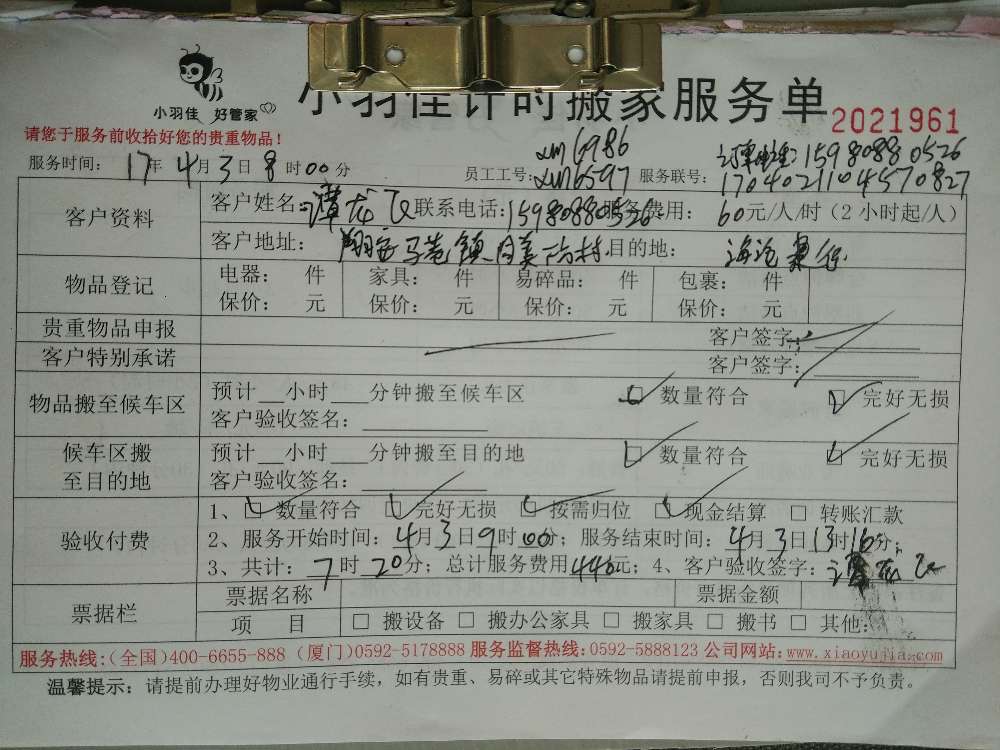 小羽佳 好管家
小羽佳计时搬家服务单
2021961
请您于服务前收拾好您的贵重物品！
服务时间: 17年4月3日8时00分 员工工号: xm6986 xm6597 服务联号: 15980880526
1704021104570827
客户资料
客户姓名: 谭龙飞 联系电话: 15980880526 服务费用: 60元/人/时（2小时起/人）
客户地址: 翔安马巷镇内美 村 目的地: 海沧
物品登记
电器: 件 家具: 件 易碎品: 件 包裹: 件
保价: 元 保价: 元 保价: 元 保价: 元
贵重物品申报 客户签字:
客户特别承诺 客户签字:
物品搬至候车区
预计__小时___分钟搬至候车区 □ 数量符合 □ 完好无损
客户验收签名:
候车区搬至目的地
预计__小时___分钟搬至目的地 □ 数量符合 □ 完好无损
客户验收签名:
验收付费
1、□ 数量符合 □ 完好无损 □ 按需归位 □ 现金结算 □ 转账汇款
2、服务开始时间: 4月3日9时00分; 服务结束时间: 4月3日13时16分;
3、共计: 7时20分; 总计服务费用446元; 4、客户验收签字: 谭龙飞
票据栏
票据名称 票据金额
项 目 □ 搬设备 □ 搬办公家具 □ 搬家具 □ 搬书 □ 其他:
服务热线:(全国)400-6655-888 (厦门)0592-5178888 服务监督热线:0592-5888123 公司网站:www.xiaoyujia.com
温馨提示: 请提前办理好物业通行手续，如有贵重、易碎或其它特殊物品请提前申报，否则我司不予负责。